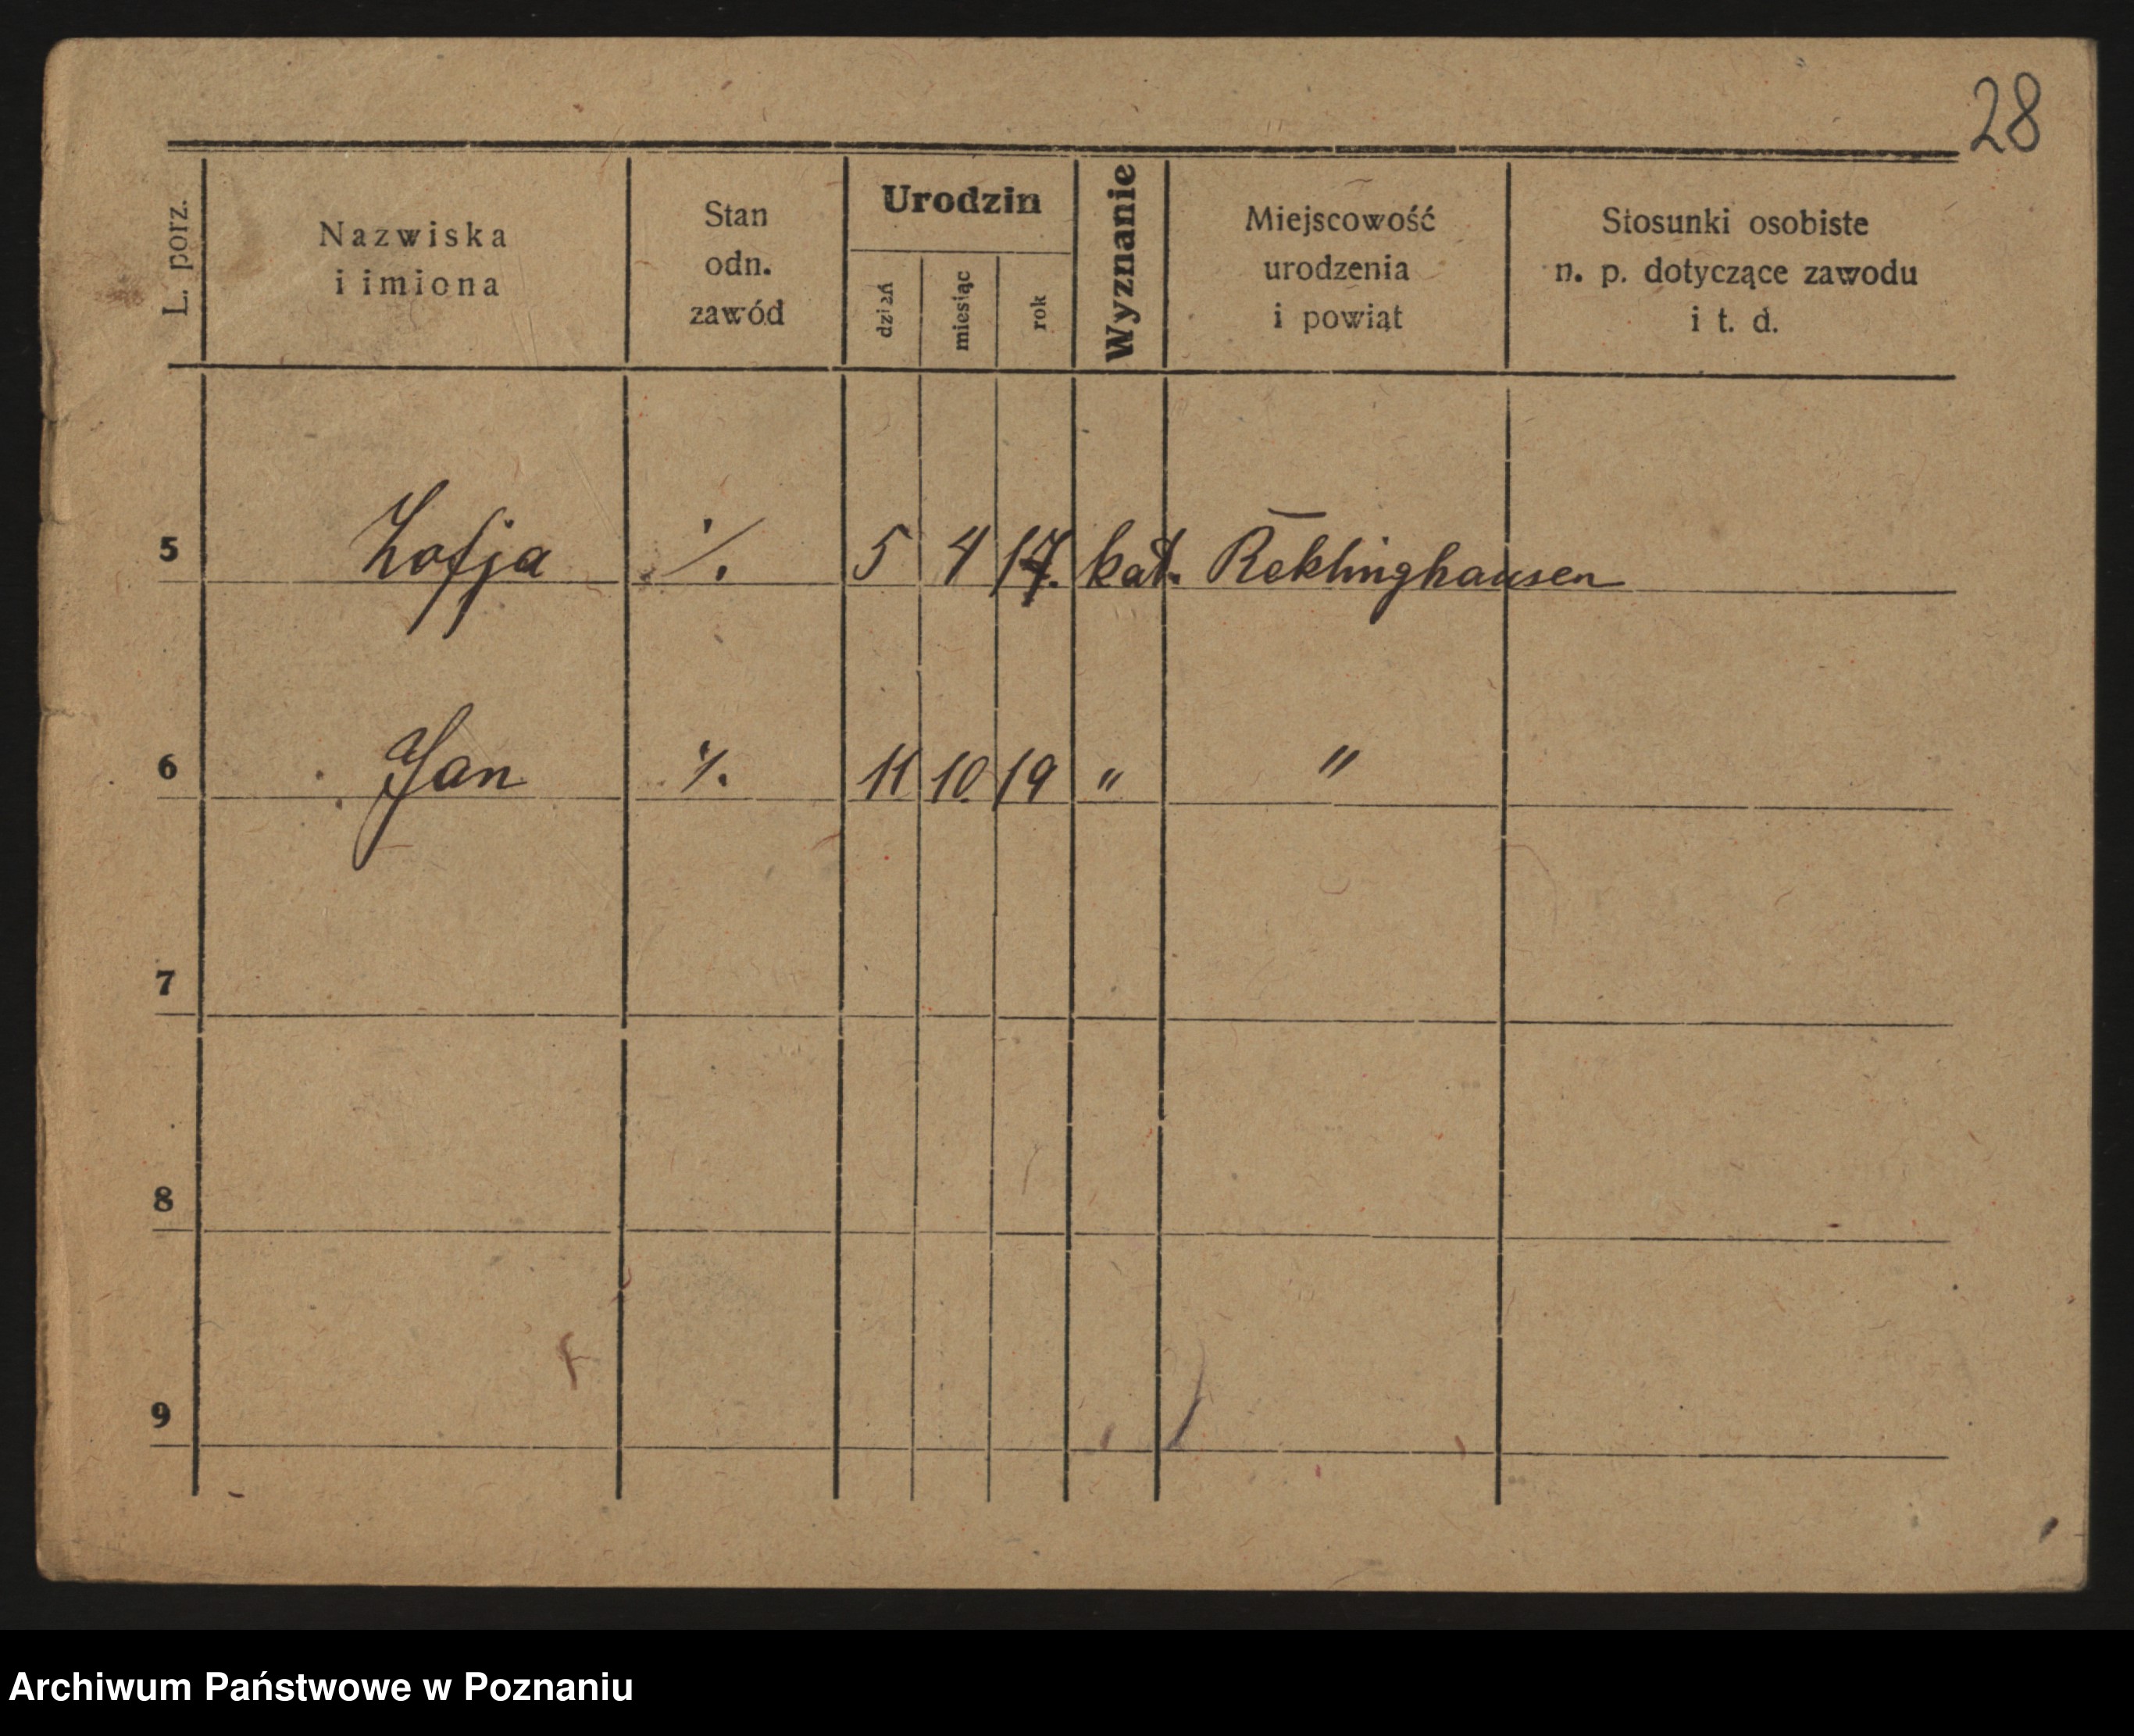 28
L. porz.
Nazwiska
i imiona
Stan
odn.
zawód
Urodzin
dzień
miesiąc
rok
Wyznanie
Miejscowość
urodzenia
i powiąt
Stosunki osobiste
n. p. dotyczące zawodu
i t. d.
5 Zofja ·/. 5 4 17. kat. Reklinghausen
6 Jan ·/. 11 10. 19 " "
7
8
9
Archiwum Państwowe w Poznaniu